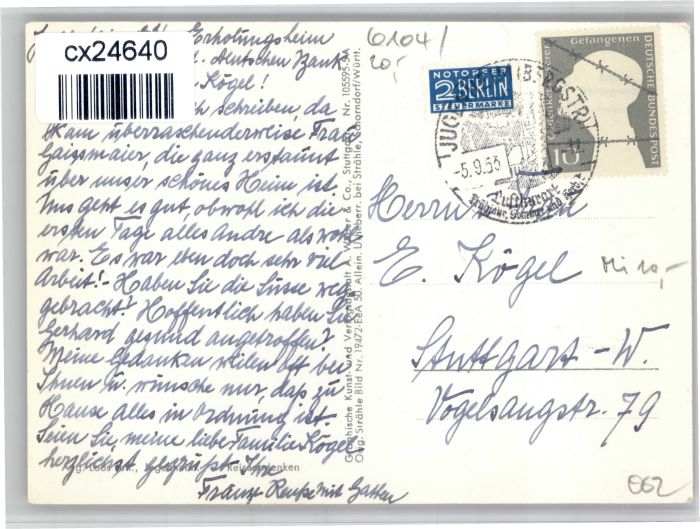 cx24640
Erholungsheim
Deutschen Bank
Kögel!
schreiben, da
kam überraschenderweise Frau
Gaigsmaier, die ganz erstaunt
über unser schönes Heim ist.
Uns geht es gut, obwohl ich die
ersten Tage alles andre als wohl
war. Es war eben doch sehr viel
Arbeit! - Haben Sie die Süsse weg
gebracht? Hoffentlich haben Sie
Gerhard gesund angetroffen?
Meine Gedanken weilen oft bei
Ihnen u. wünsche nur, daß zu
Hause Alles in Ordnung ist.
Seien Sie, meine liebe Familie Kögel
herzlichst gegrüßt Ihre
mit Gatten
Reiseandenken
Graphische Kunst- und Verlagsanstalt A. Weber & Co., Stuttgart
Nr. 105595 EA
Orig. Strähle Bild Nr. 19472-EeA 50. Allein. Urheberr. bei Strähle, Schorndorf/Württ.
6104/
20,-
NOTOPFER
2 BERLIN
STEUERMARKE
-5.9.53
Luftkurort
Gefangenen
DEUTSCHE BUNDESPOST
10
Herrn
E. Kögel
Stuttgart-W.
Vogelsangstr. 79